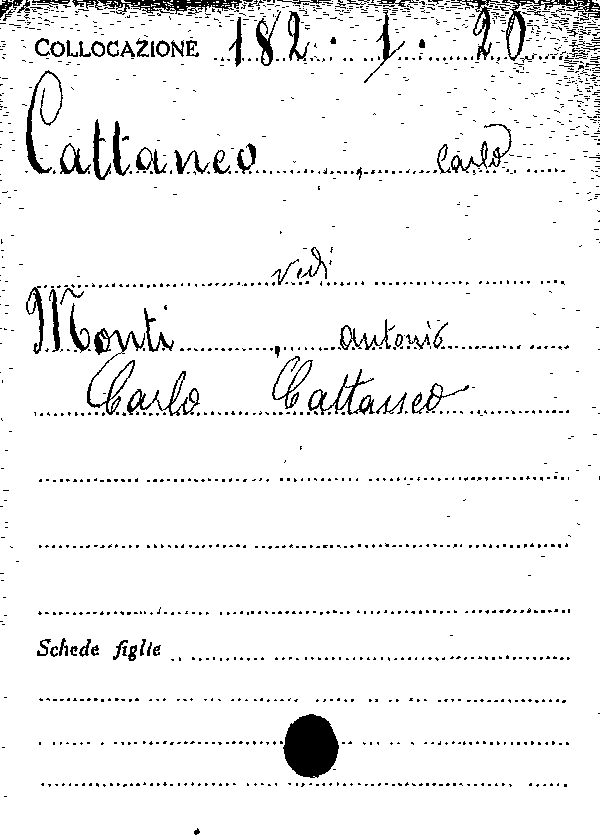 COLLOCAZIONE 182.1.20
Cattaneo, Carlo
vedi
Monti, Antonio
Carlo Cattaneo
Schede figlie